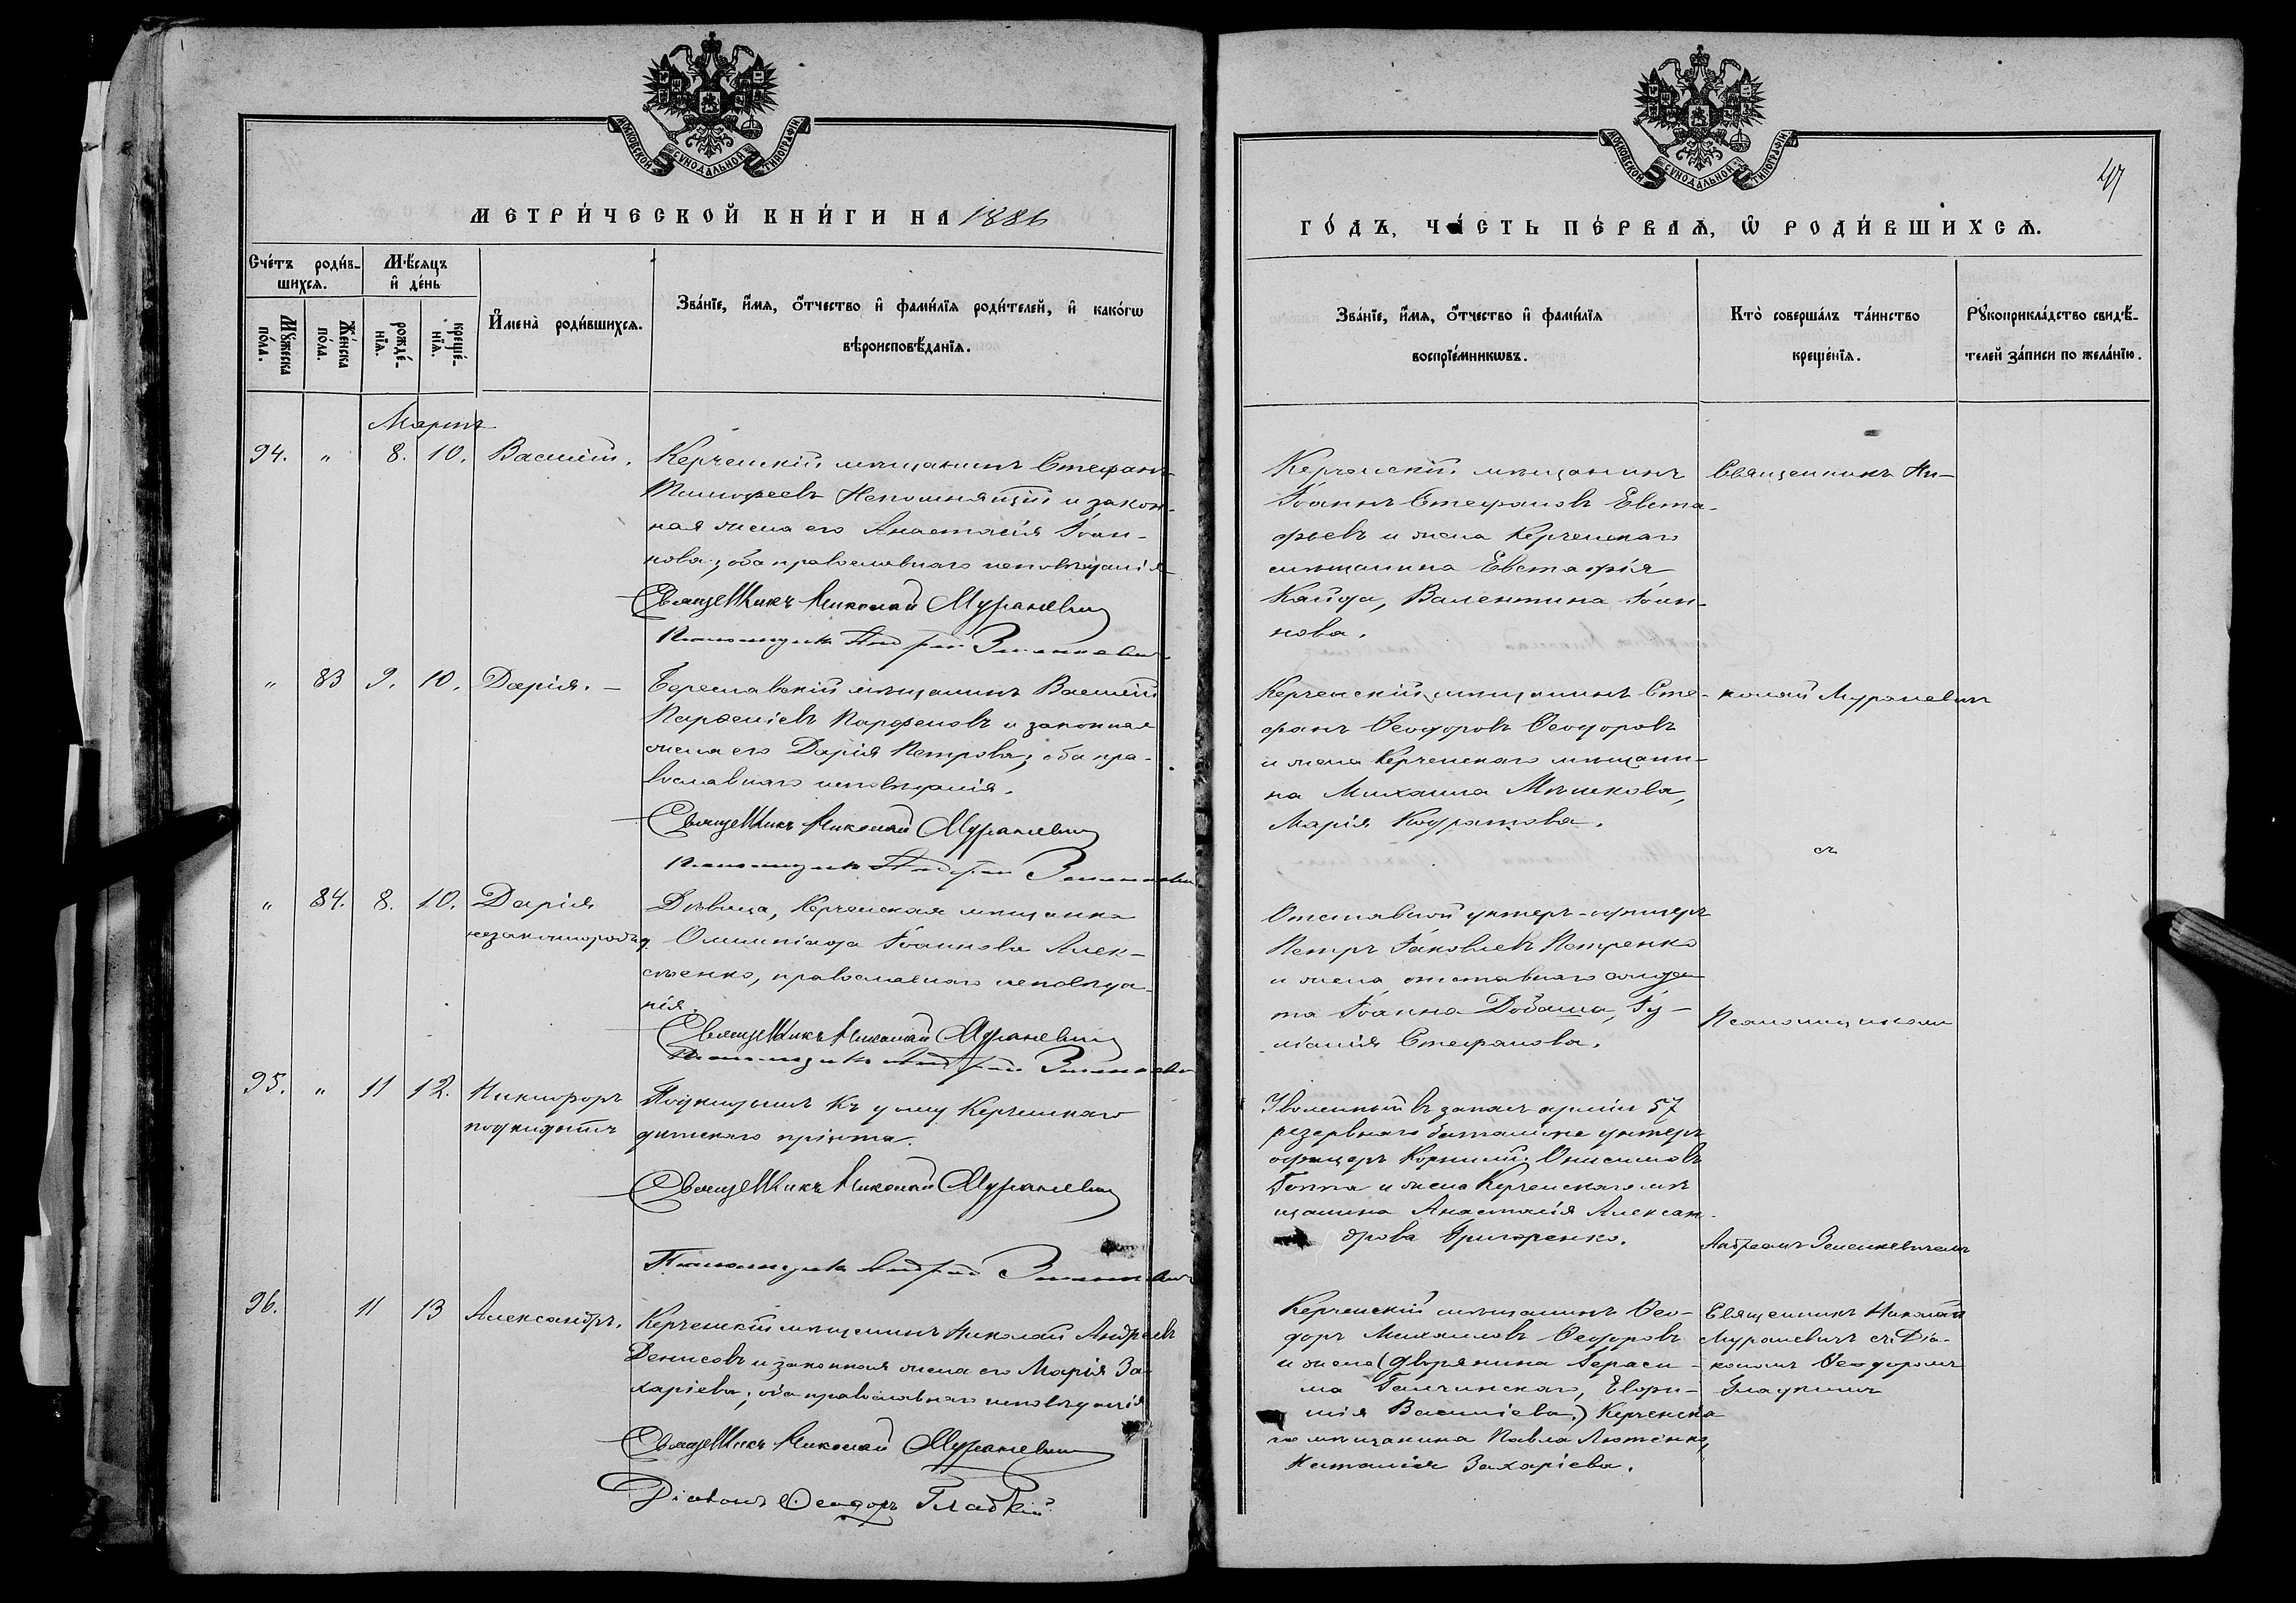 МОСКОВСКОЙ СУНОДАЛЬНОЙ ТИПОГРАФІИ
МЕТРИ́ЧЕСКОЙ КНИ́ГИ НА 1886
Сче́тъ роди́в-
шихся.
Мѣ́сяцъ
и҆ де́нь
Мꙋ́жеска
по́ла.
Же́нска
по́ла.
рожде́-
нїя.
креще́-
нїя.
И҆мена̀ роди́вшихся.
Зва́нїе, и҆́мя, ѻ҆́тчество и҆ фами́лїя роди́телей, и҆ како́гѡ
вѣроисповѣ́данїя.
Мартъ
94. „ 8. 10. Василій.
Керченскій мѣщанинъ Стефанъ
Тимофеевъ Непомнящій и закон-
ная жена его Анастасія Іоан-
нова; оба православнаго исповѣданія
Священникъ Николай Мураневич
Псаломщикъ Андрей Зеленкевич
„ 83 9. 10. Дарія. —
Береславскій мѣщанинъ Василій
Парѳеніевъ Парфеновъ и законная
жена его Дарія Петрова; оба пра-
вославнаго исповѣданія.
Священникъ Николай Мураневич
Псаломщикъ Андрей Зеленкевич
„ 84. 8. 10. Дарія
незаконнорожд
Дѣвица, Керченская мѣщанка
Олимпіада Іоаннова Алек-
сѣенко, православнаго исповѣда-
нія.
Священникъ Николай Мураневич
Псаломщикъ Андрей Зеленкевич
95. „ 11 12. Никифоръ
подкидышъ
Подкидышъ къ дому Керченскаго
дѣтскаго пріюта.
Священникъ Николай Мураневич
Псаломщикъ Андрей Зеленкевич
96. 11 13 Александръ.
Керченскій мѣщанинъ Николай Андреевъ
Денисовъ и законная жена его Марія За-
харіева; оба православнаго исповѣданія
Священникъ Николай Мураневич
Діаконъ Ѳеодоръ Гладкій
МОСКОВСКОЙ СУНОДАЛЬНОЙ ТИПОГРАФІИ
47
ГО́ДЪ, ЧА́СТЬ ПЕ́РВАЯ, Ѡ҆ РОДИ́ВШИХСЯ.
Зва́нїе, и҆́мя, ѻ҆́тчество и҆ фами́лїя
воспрїе́мникѡвъ.
Кто̀ соверша́лъ та́инство
креще́нїя.
Рꙋкоприкла́дство свидѣ́-
телей за́писи по жела́нїю.
Керченскій мѣщанинъ
Іоаннъ Стефановъ Евста-
фьевъ и жена Керченскаго
мѣщанина Евстафія
Кайда, Валентина Іоан-
нова.
Священникъ Ни-
Керченскій мѣщанинъ Сте-
фанъ Ѳеодоровъ Ѳеодоровъ
и жена Керченскаго мѣщани-
на Михаила Мѣшкова,
Марія Кодратова.
колай Мураневичъ
съ
Отставной унтеръ-офицеръ
Петръ Іаковлевъ Петренко
и жена отставнаго солда-
та Іоанна Добаша, Іу-
ліанія Стефанова.
Псаломщикомъ
Уволенный въ запасъ арміи 57
резервнаго баталіона унтеръ
офицеръ Корнилій Онисимовъ
Гоппа и жена Керченскаго мѣ
щанина Анастасія Алексан-
дрова Григоренко.
Андреемъ Зеленкевичемъ
Керченскій мѣщанинъ Ѳео-
доръ Михаиловъ Ѳеодоровъ
и жена (дворянина Гераси-
ма Галчинскаго, Евфи-
мія Василіева.) Керченска
го мѣщанина Павла Лютенко,
Наталія Захаріева.
Священникъ Николай
Мураневичъ съ Діа-
кономъ Ѳеодоромъ
Гладкимъ